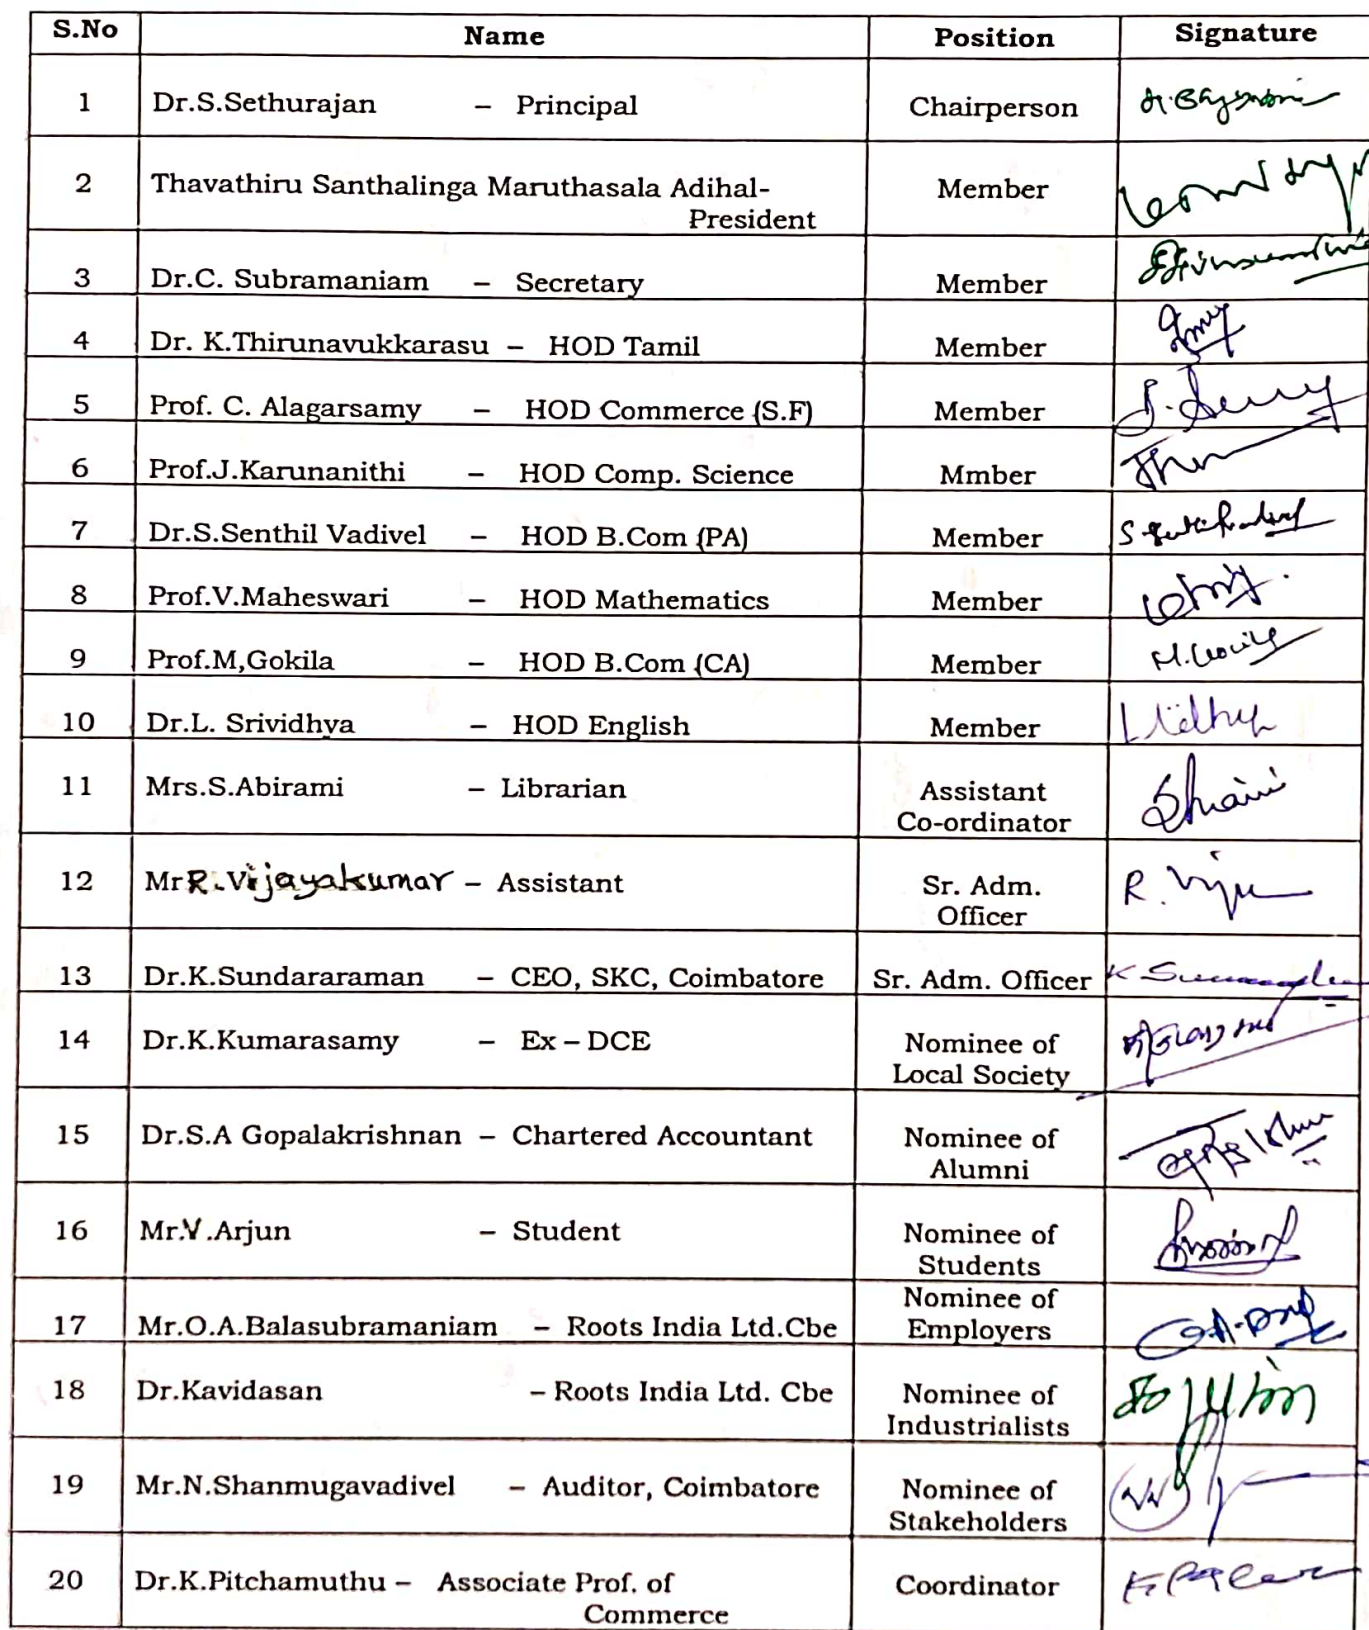 S.No Name Position Signature
1 Dr.S.Sethurajan – Principal Chairperson
2 Thavathiru Santhalinga Maruthasala Adihal- Member
President
3 Dr.C. Subramaniam – Secretary Member
4 Dr. K.Thirunavukkarasu – HOD Tamil Member
5 Prof. C. Alagarsamy – HOD Commerce (S.F) Member
6 Prof.J.Karunanithi – HOD Comp. Science Mmber
7 Dr.S.Senthil Vadivel – HOD B.Com (PA) Member
8 Prof.V.Maheswari – HOD Mathematics Member
9 Prof.M,Gokila – HOD B.Com (CA) Member
10 Dr.L. Srividhya – HOD English Member
11 Mrs.S.Abirami – Librarian Assistant
Co-ordinator
12 Mr R.Vijayakumar – Assistant Sr. Adm.
Officer
13 Dr.K.Sundararaman – CEO, SKC, Coimbatore Sr. Adm. Officer
14 Dr.K.Kumarasamy – Ex – DCE Nominee of
Local Society
15 Dr.S.A Gopalakrishnan – Chartered Accountant Nominee of
Alumni
16 Mr.V.Arjun – Student Nominee of
Students
Nominee of
17 Mr.O.A.Balasubramaniam – Roots India Ltd.Cbe Employers
18 Dr.Kavidasan – Roots India Ltd. Cbe Nominee of
Industrialists
19 Mr.N.Shanmugavadivel – Auditor, Coimbatore Nominee of
Stakeholders
20 Dr.K.Pitchamuthu – Associate Prof. of Coordinator
Commerce